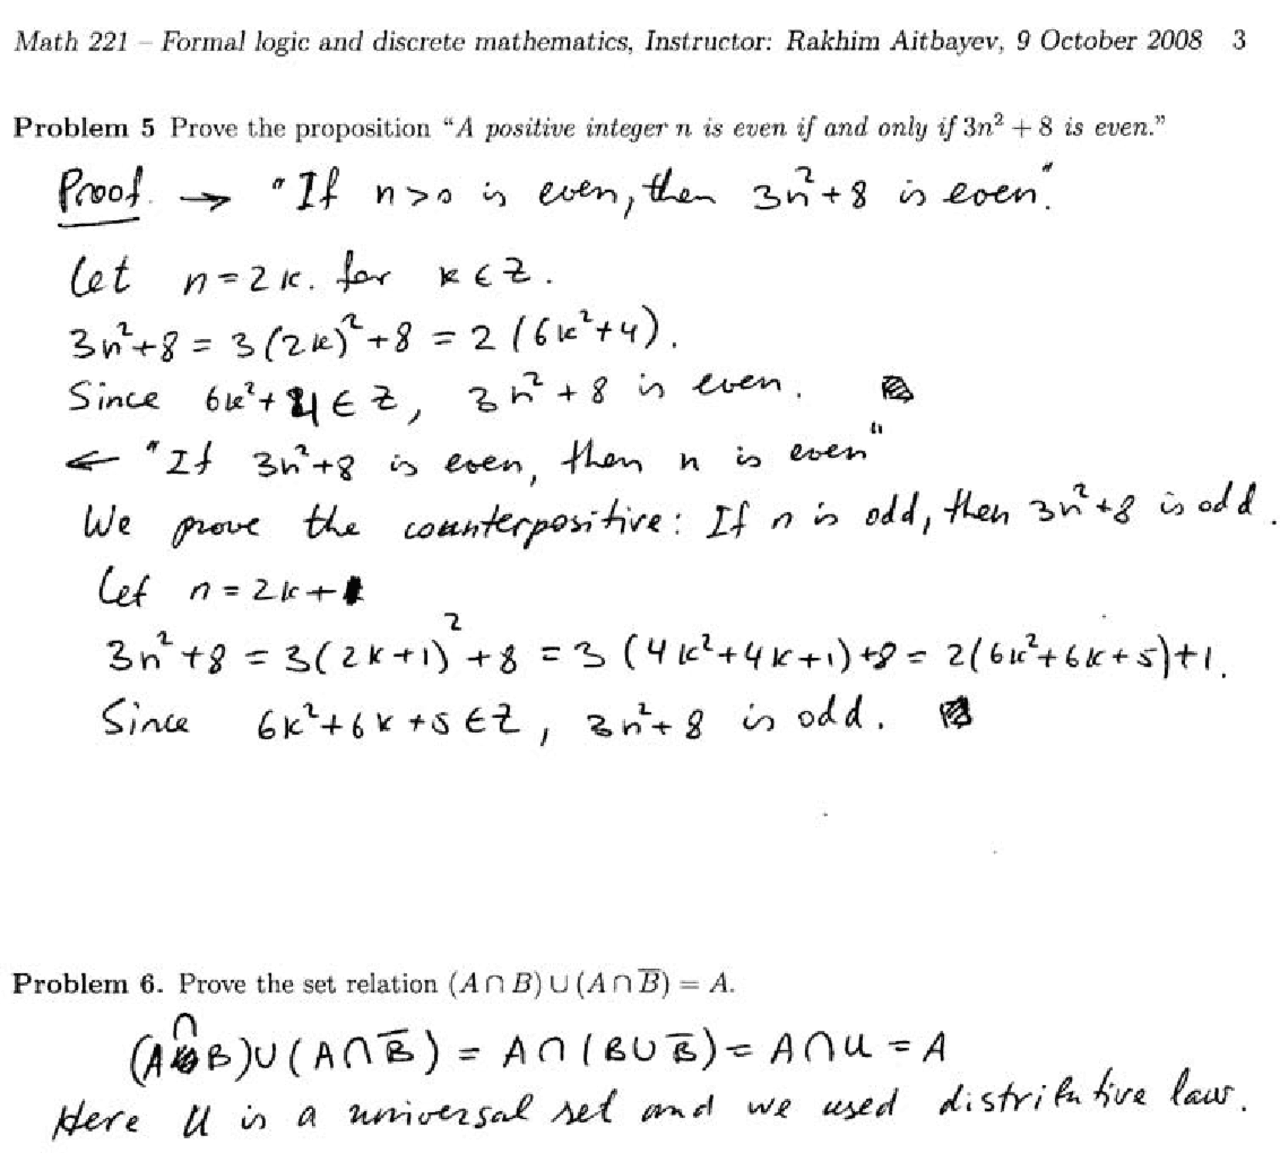 Math 221 – Formal logic and discrete mathematics, Instructor: Rakhim Aitbayev, 9 October 2008 3
Problem 5 Prove the proposition “A positive integer n is even if and only if 3n² + 8 is even.”
Proof. → "If n>0 is even, then 3n²+8 is even".
Let n=2k. for k∈Z.
3n²+8 = 3(2k)²+8 = 2(6k²+4).
Since 6k²+4∈Z, 3n²+8 is even.
← "If 3n²+8 is even, then n is even"
We prove the counterpositive: If n is odd, then 3n²+8 is odd.
Let n=2k+1
3n²+8 = 3(2k+1)²+8 = 3(4k²+4k+1)+8 = 2(6k²+6k+5)+1.
Since 6k²+6k+5∈Z, 3n²+8 is odd.
Problem 6. Prove the set relation (A∩B)∪(A∩B̅) = A.
(A∩B)∪(A∩B̅) = A∩(B∪B̅) = A∩U = A
Here U is a universal set and we used distributive laws.